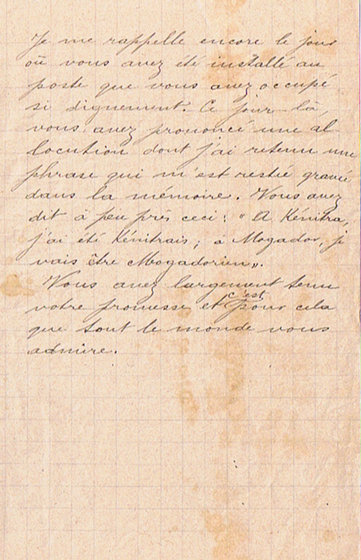 Je me rappelle encore le jour
où vous avez été installé au
poste que vous avez occupé
si dignement. Ce jour-là
vous avez prononcé une al
locution dont j'ai retenu une
phrase qui m'est restée gravée
dans la mémoire. Vous avez
dit à peu près ceci : "A Kénitra,
j'ai été Kénitrais ; a Mogador, je
vais être Mogadorien".
Vous avez largement tenu
votre promesse et c'est pour cela
que tout le monde vous
admire.